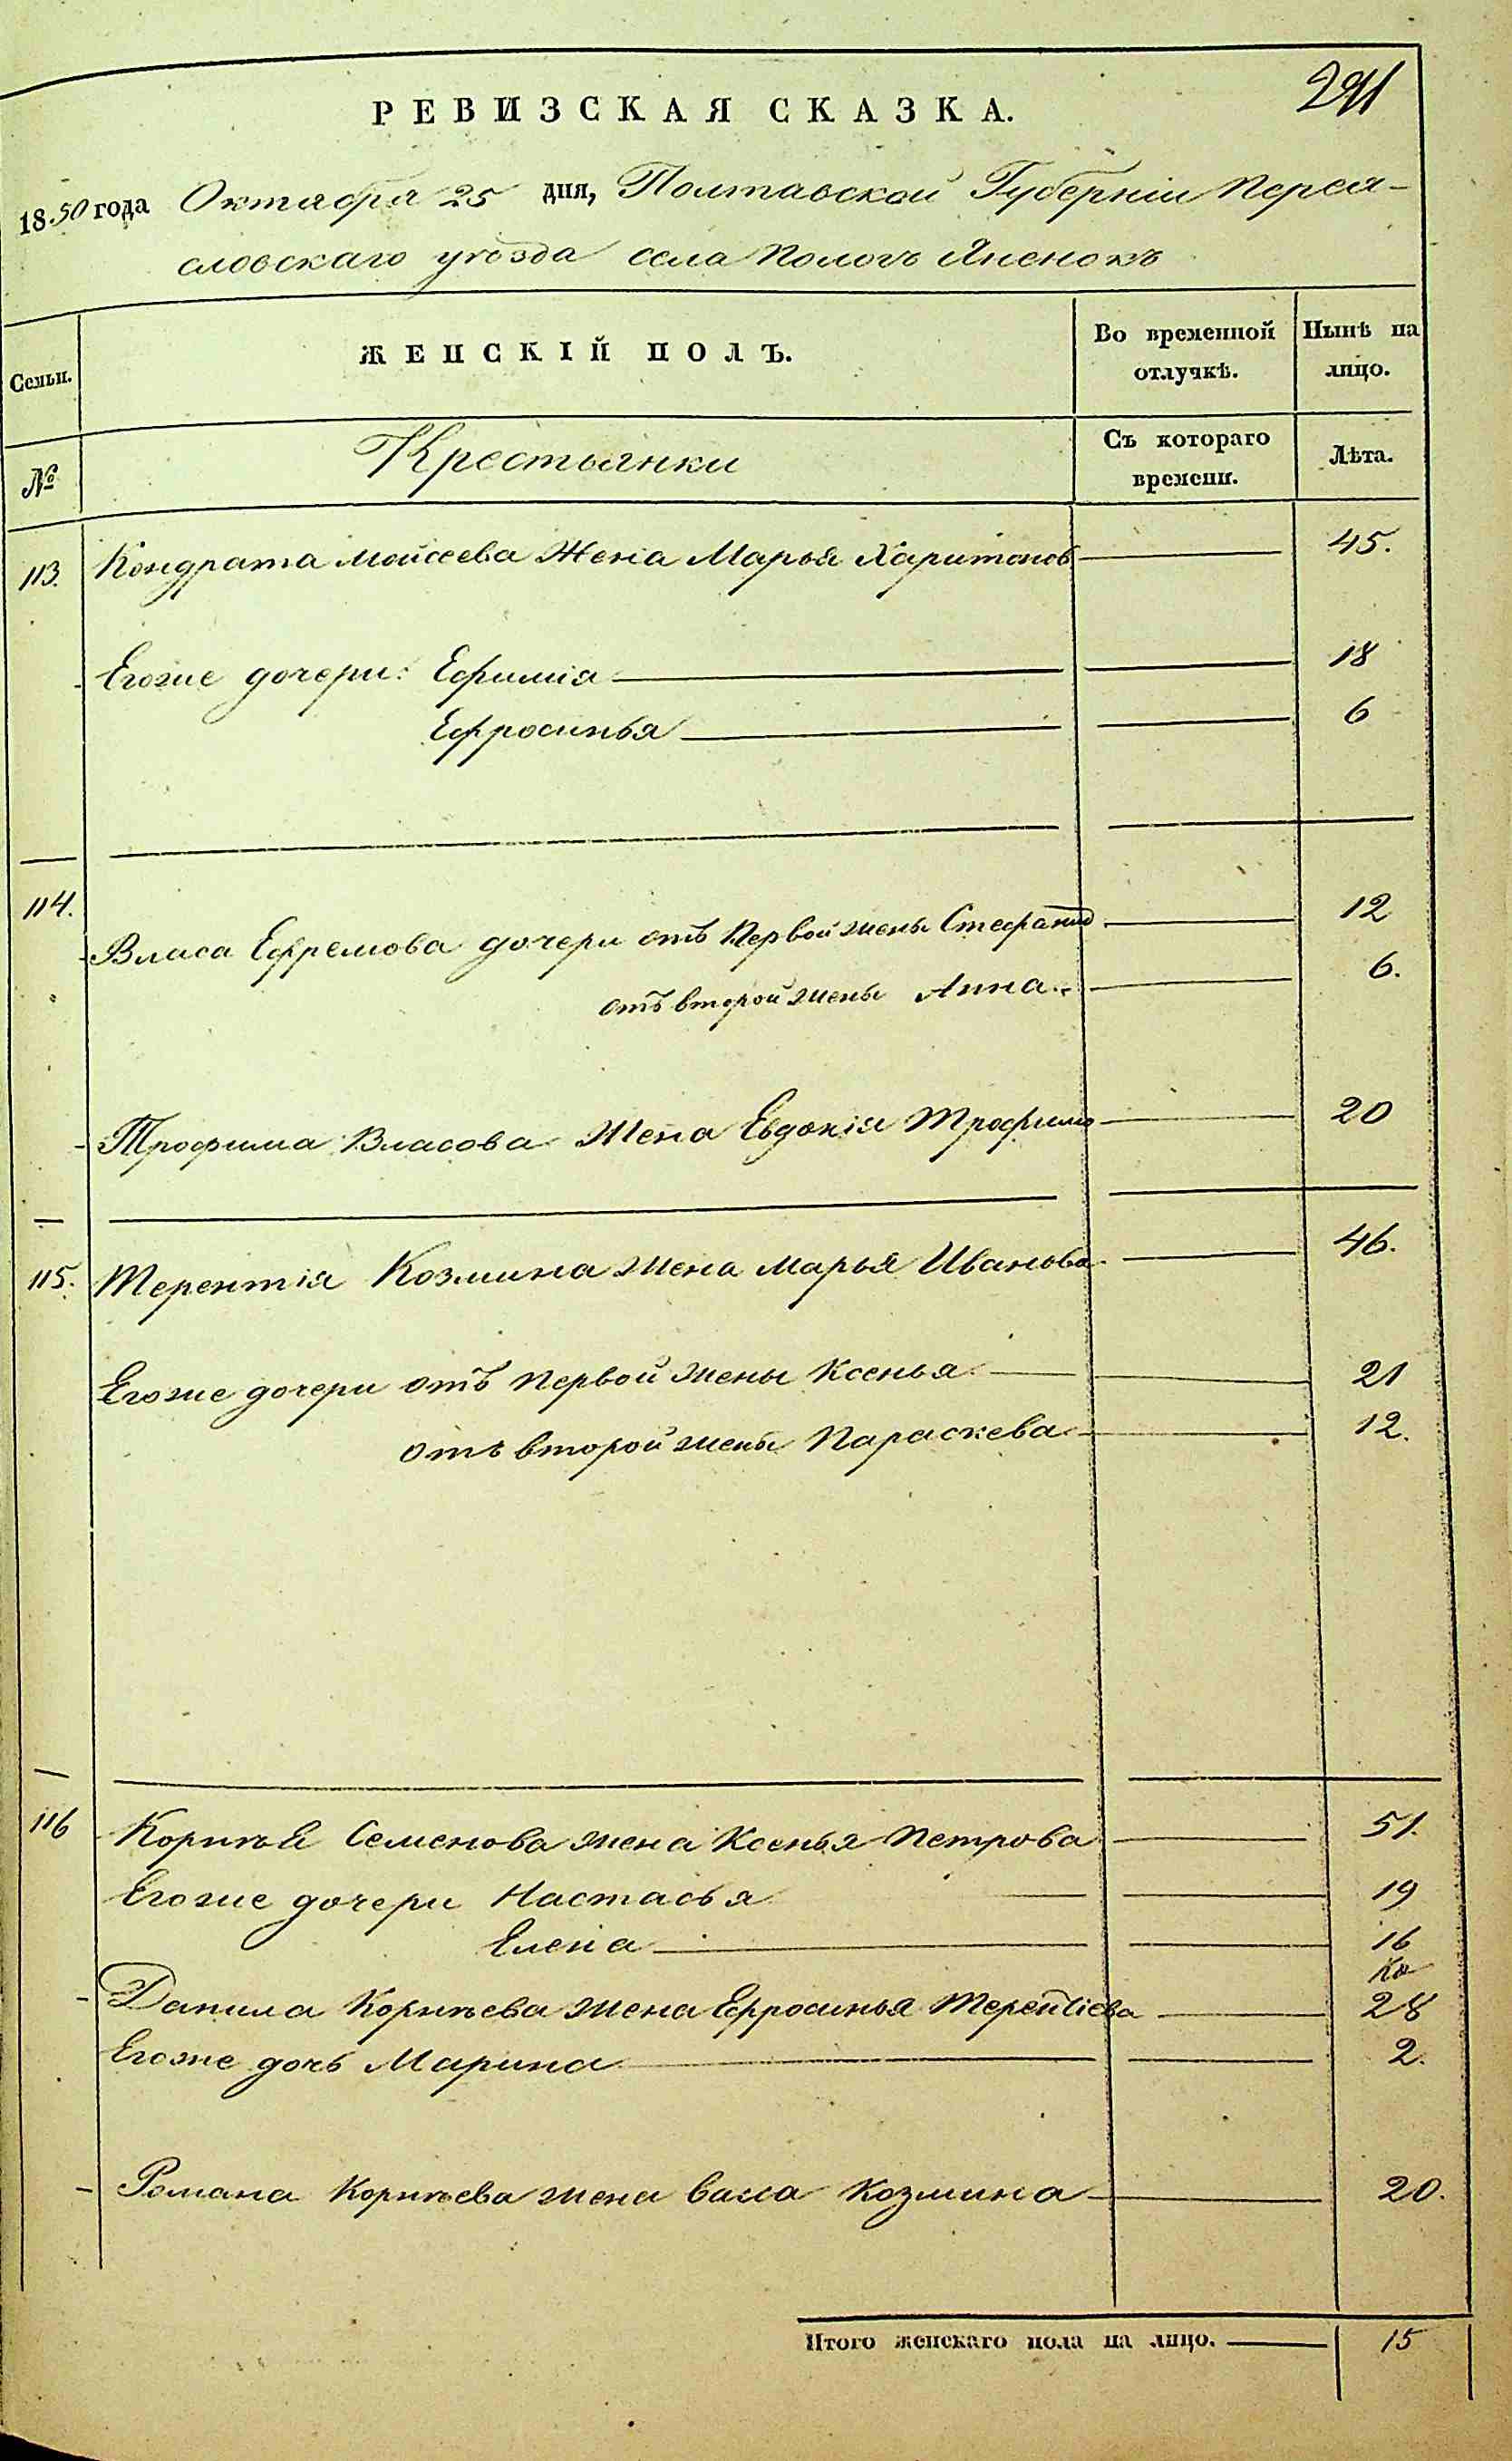 291
РЕВИЗСКАЯ СКАЗКА.
1850 года Октября 25 дня, Полтавской Губерніи Перея-
словскаго уѣзда села Пологъ Яненокъ
Семьи. ЖЕНСКІЙ ПОЛЪ. Во временной отлучкѣ. Нынѣ на лицо.
№ Крестьянки Съ котораго времени. Лѣта.
113. Кондрата Мойсеева Жена Марья Харитонов 45.
Егоже дочери: Ефимія 18
Ефросинья 6
114. Власа Ефремова дочери отъ Первой жены Стефанид 12
отъ второй жены Анна 6.
Трофима Власова Жена Евдокія Трофимо 20
115. Терентія Козмина жена Марья Иванова 46.
Егоже дочери отъ Первой жены Ксенья 21
отъ второй жены Параскева 12.
116 Корнѣя Семенова жена Ксенья Петрова 51.
Егоже дочери Настасья 19
Елена 16
Данила Корнѣева жена Ефросинья Терентіева 28
Егоже дочь Марина 2.
Романа Корнѣева жена Васса Козмина 20.
Итого женскаго пола на лицо. 15